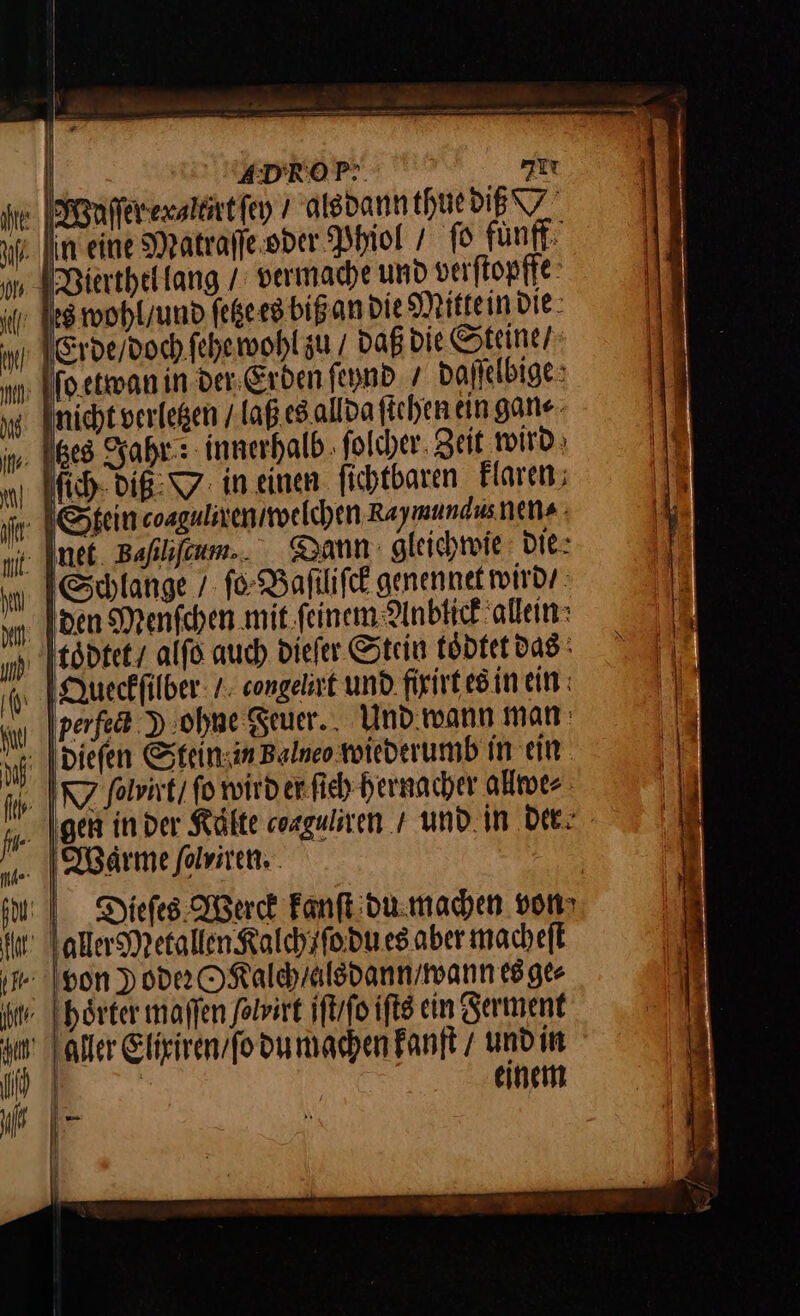 ADROP. 711
Waſſer exaltirt ſey / alsdann thue diß 🜄
in eine Matraſſe oder Phiol / ſo fünff
Vierthel lang / vermache und verſtopffe
es wohl / und ſetze es biß an die Mitte in die
Erde / doch ſehe wohl zu / daß die Steine /
ſo etwan in der Erden ſeynd / daſſelbige
nicht verletzen / laß es allda ſtehen ein gan⸗
tzes Jahr: innerhalb ſolcher Zeit wird
ſich diß 🜄 in einen ſichtbaren klaren
Stein coaguliren / welchen Raymundus nen⸗
net Baſiliſcum. Dann gleichwie die
Schlange / ſo Baſiliſck genennet wird /
den Menſchen mit ſeinem Anblick allein
tödtet / alſo auch dieſer Stein tödtet das
Queckſilber / congelirt und fixirt es in ein
perfect ☽ ohne Feuer. Und wann man
dieſen Stein in Balneo wiederumb in ein
🜄 ſolvirt / ſo wird er ſich hernacher allwe⸗
gen in der Kälte coaguliren / und in der
Wärme ſolviren.
Dieſes Werck kanſt du machen von
aller Metallen Kalch / ſo du es aber macheſt
von ☽ oder ☉ Kalch / alsdann / wann es ge⸗
hörter maſſen ſolvirt iſt / ſo iſts ein Ferment
aller Elixiren / ſo du machen kanſt / und in
einem